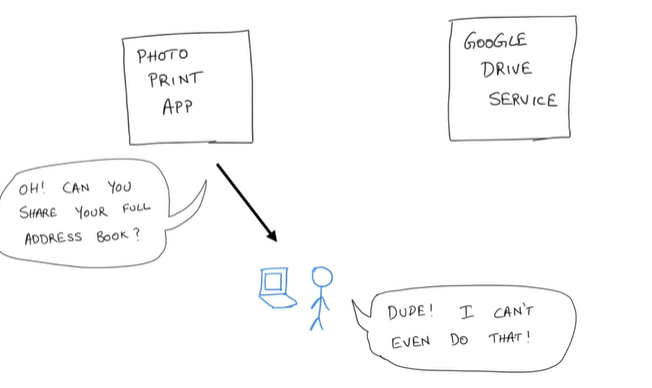 PHOTO
PRINT
APP
GOOGLE
DRIVE
SERVICE
OH! CAN YOU
SHARE YOUR FULL
ADDRESS BOOK?
DUDE! I CAN'T
EVEN DO THAT!